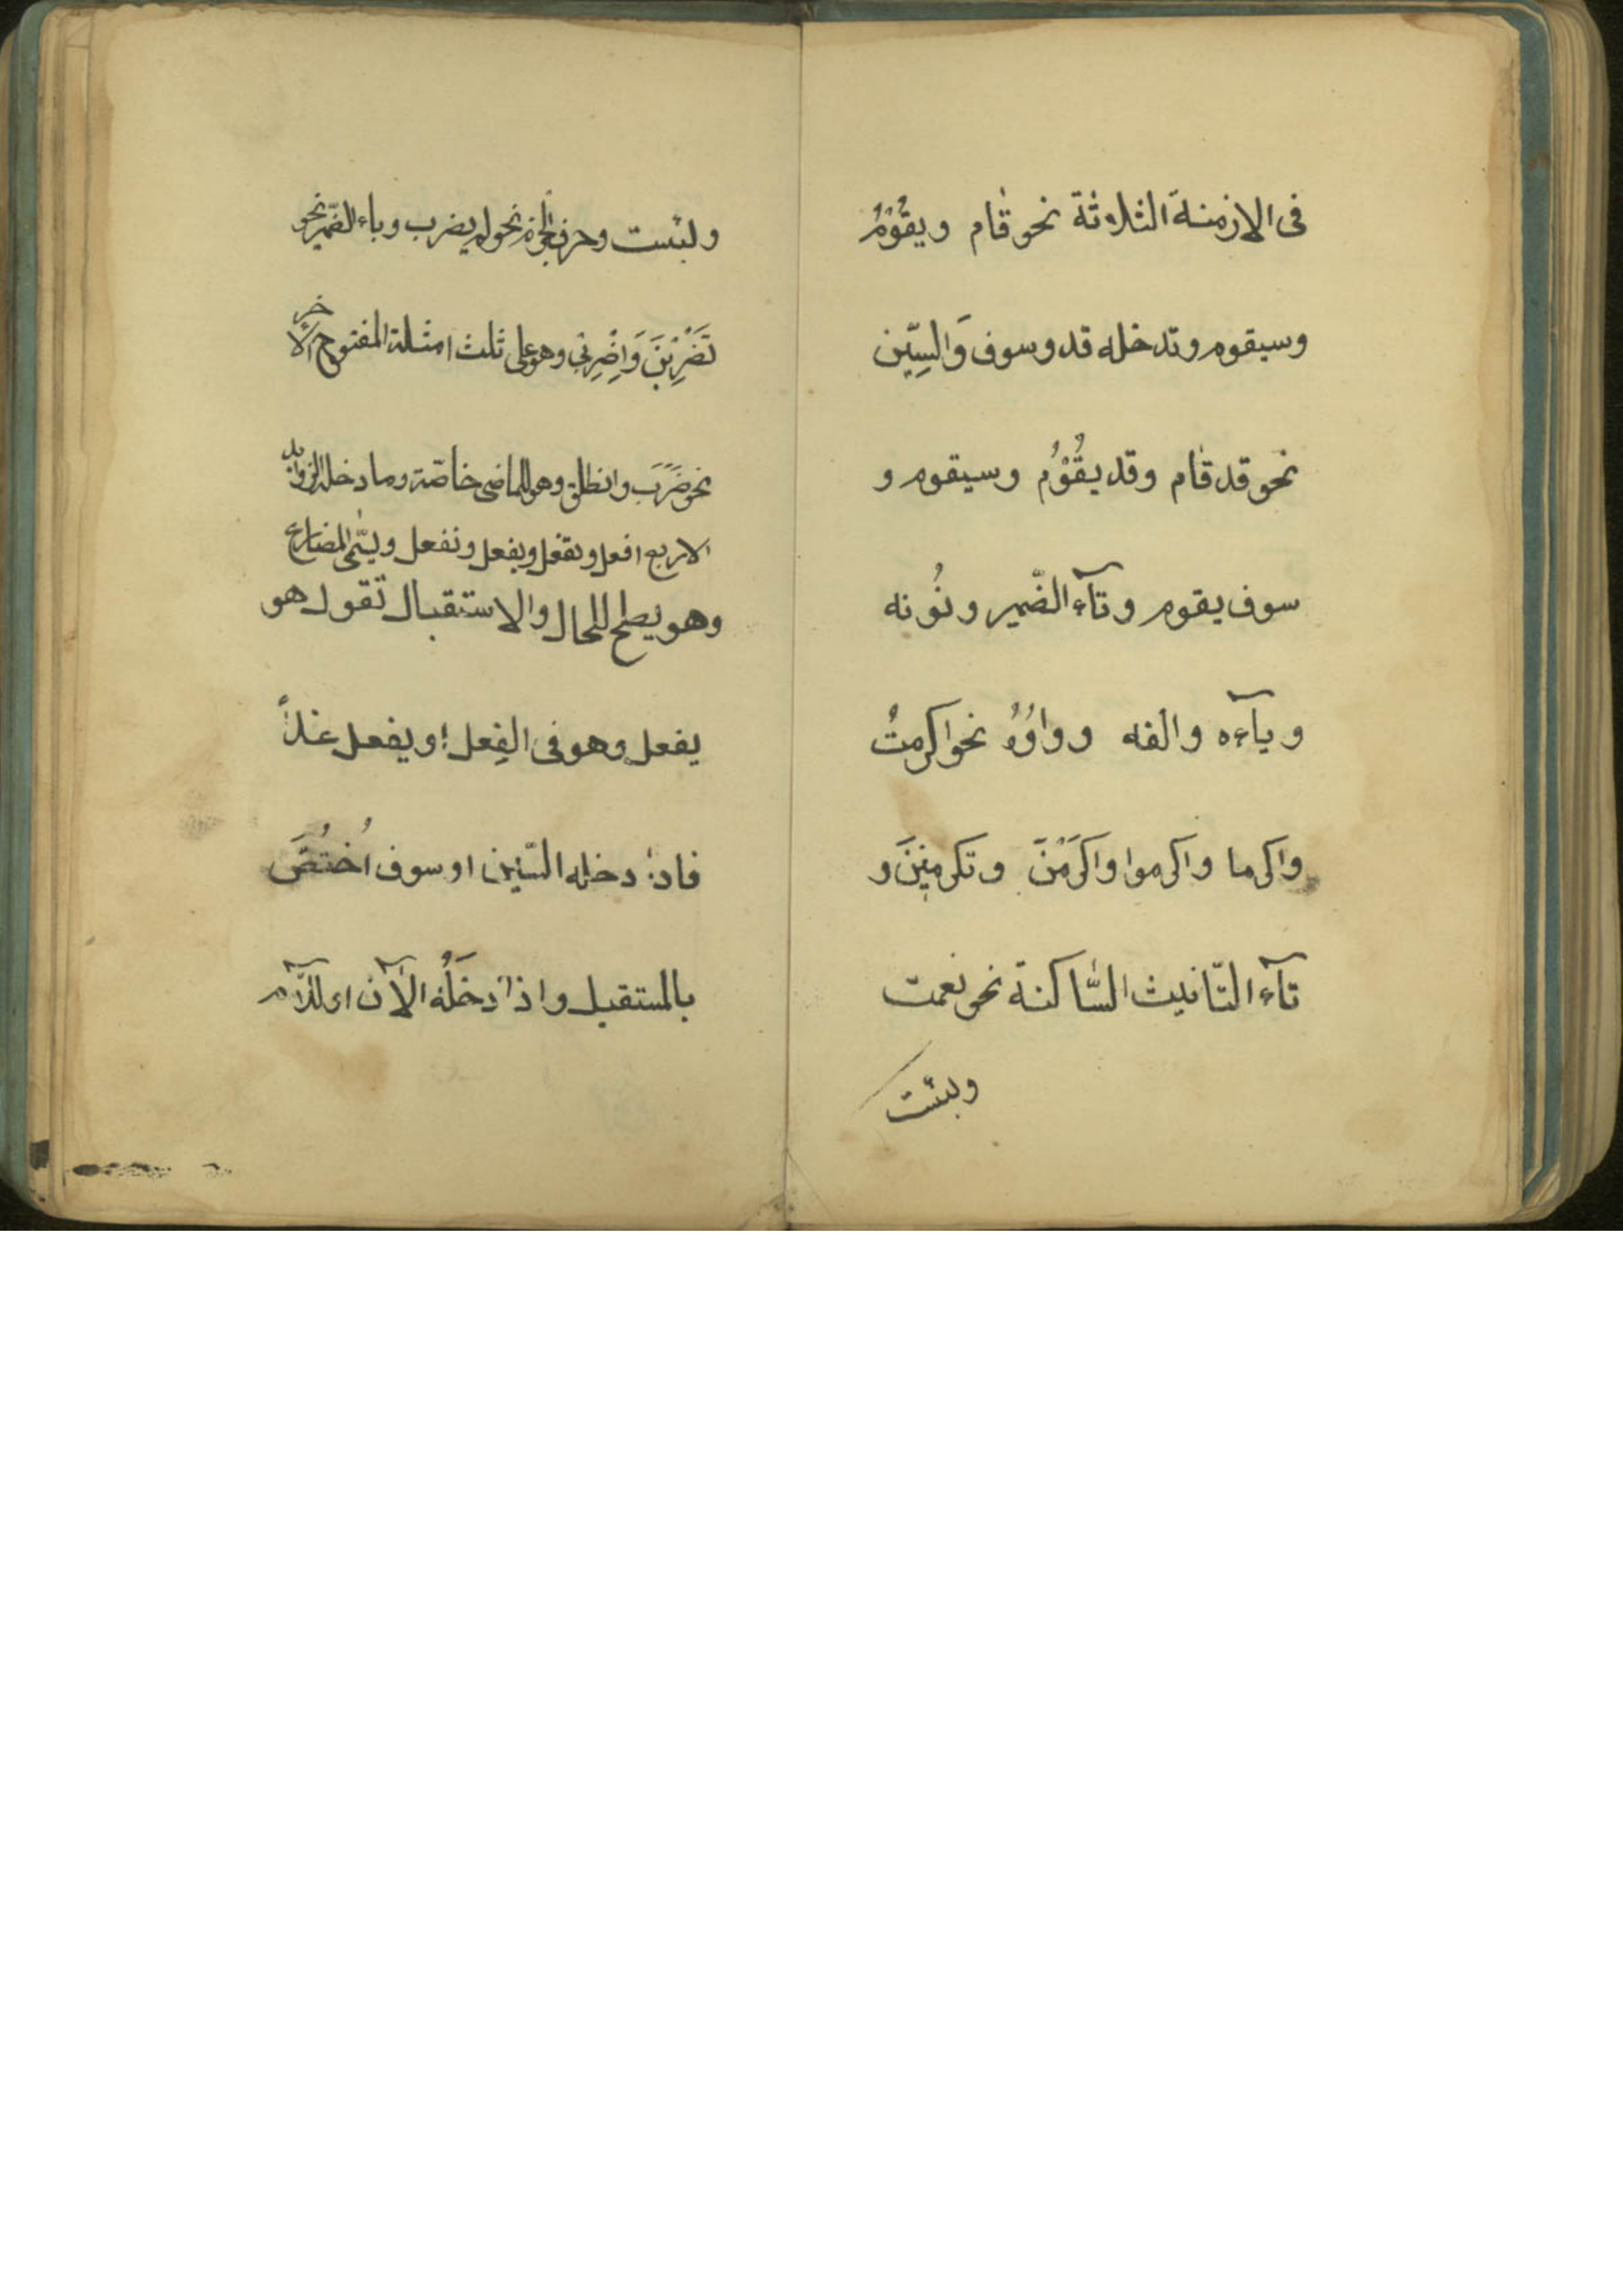 فى الازمنة الثلاثة نحو قام ويقُوْمُ
وسيقوم وتدخله قد وسوف وَالسِّين
نحو قد قام وقد يقُوْمُ وسيقوم و
سوف يقوم وتآء الضّمير ونُونه
ويآءه والفه وواوُهُ نحو اكرمتُ
واكرما واكرموا واكرَمْنَ وتكرمينَ و
تآء التّانيث السّاكنة نحو نعمت
وبئست
ولبئست وحرف الجزم نحو لم يضرب وياء الضّمير نحو
تَضْرِبْينَ وَاِضْرِبْى وهو على ثلث امثلة المفتوح الآخر
نحو ضَرَبَ وانطلق وهو للماضى خاصّة وما دخله الزوايد
الاربع افعل وتفعل ويفعل ونفعل ويسّمى المضارع
وهو يصلح للحال والاستقبال تقول هو
يفعل وهو فى الفِعل او يفعل غداً
فاذا دخله السّين او سوف اُختُصَّ
بالمستقبل واذا دخَلَهُ الآن او اللّام